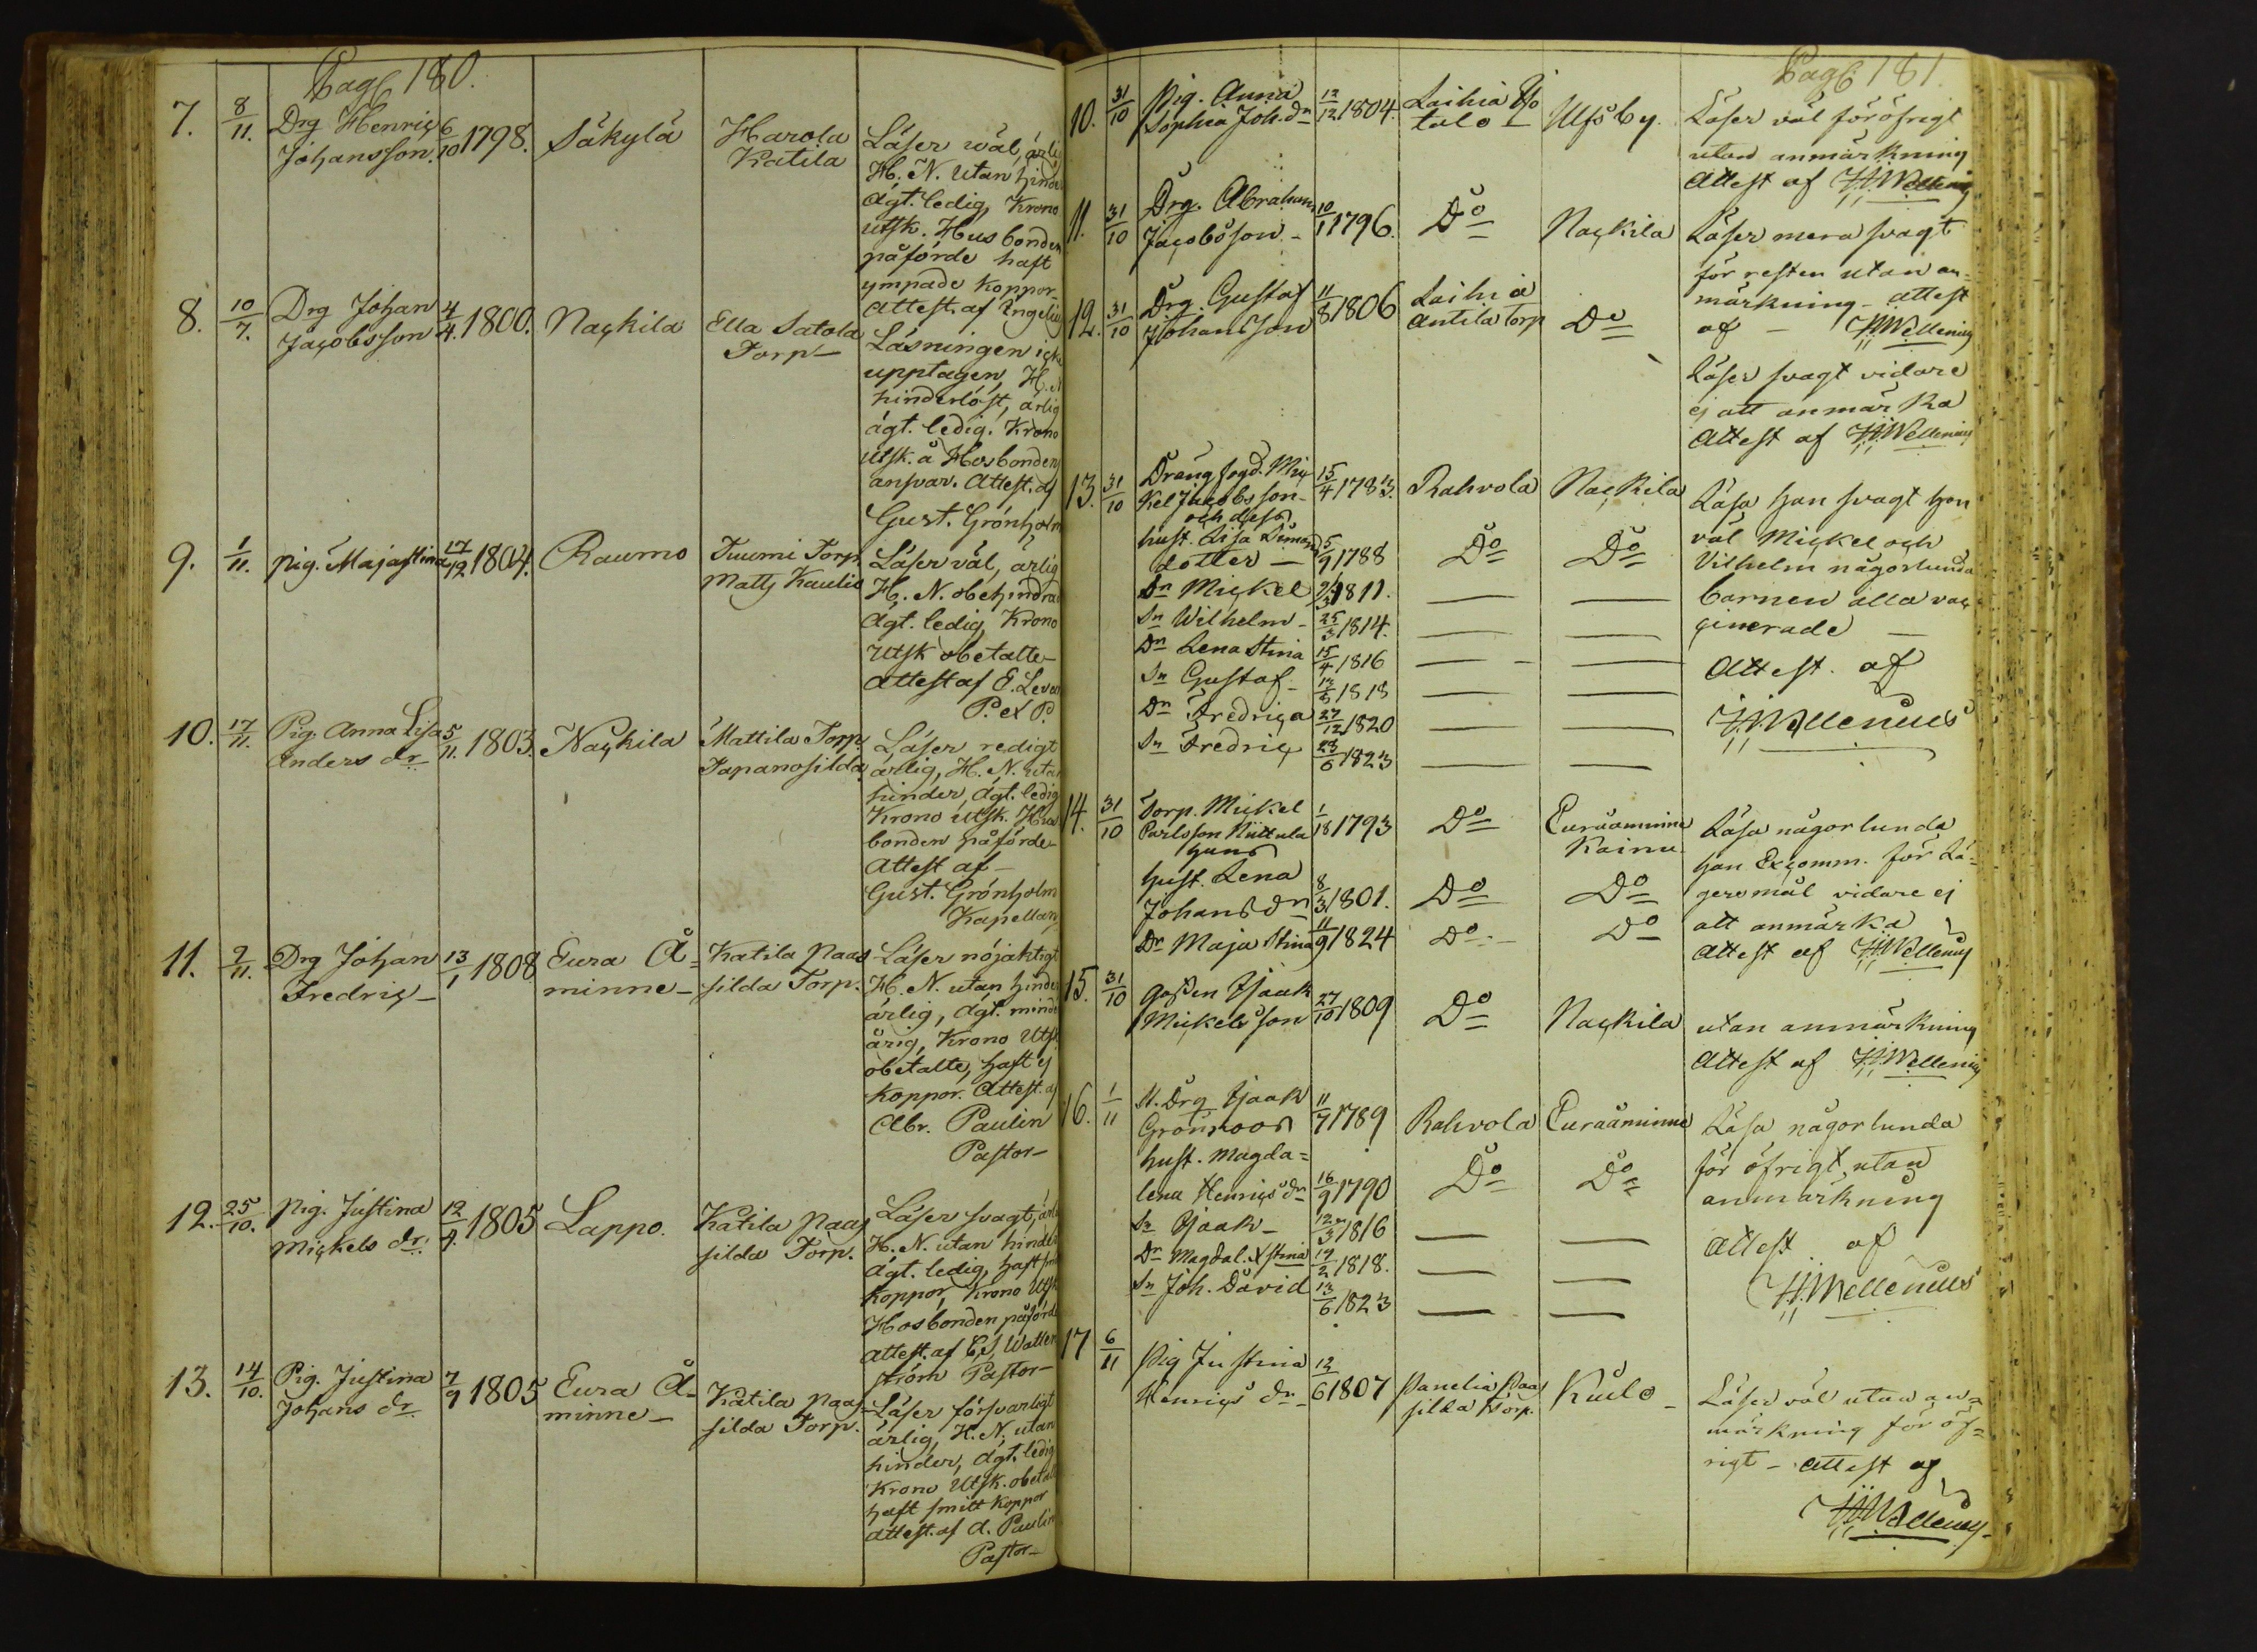 Pag. 180.
7. 8/11. Drg Henric 6/10 1798. Säkylä Harola Läser wäl, ärlig
Johansson. Katila H. N. utan hinder
ägt. ledig, Krono
utsk. Husbonden
påförde haft
ympade koppor
Attest. af
8. 10/7. Drg Johan 4/4. 1800. Nackila Ella Satola Läsningen icke
Jacobsson Torp upptagen, H. N.
hinderlöst, ärlig
ägt. ledig. Krono
utsk. å Hosbondens
ansvar. Attest. af
Gust. Grönholm
9. 1/11. Pig. Majastina 17/12 1804. Raumo Tuomi Torp Läser väl, ärlig
Matts Kaulio H. N. obehindrad
Ägt. ledig, Krono
Utsk obetalte
Attest af E. Levan
P. et P.
10. 17/11. Pig. Anna Lisa 5/11. 1803. Nackila Mattila Torp. Läser redigt
Anders dr Tapanosilda ärlig, H. N. utan
hinder, ägt. ledig
Krono Utsk. Hus
bonden påförde
Attest af
Gust. Grönholm
Kapellan
11. 2/11. Drg Johan 13/1 1808 Eura Å= Katila Naas Läser nöjaktigt
Fredric minne silda Torp. H. N. utan hinder
ärlig, ägt. minder
årig, Krono Utsk
obetalte, haft ej
koppor. Attest. af
Abr. Paulin
Pastor
12. 25/10. Pig. Justina 12/4. 1805 Lappo. Katila Naas Läser svagt, ärlig
Mickels dr. silda Torp. H. N. utan hinder
ägt. ledig, haft
koppor, Krono Utsk
Hosbonden påförde
attest. af Watten
ström Pastor
13. 14/10. Pig. Justina 7/9 1805 Eura Å= Katila Naas Läser försvarligt
Johans dr minne silda Torp. ärlig, H. N. utan
hinder, ägt. ledig
Krono Utsk. obetalt
haft smitt koppor
attest. af A. Paulin
Pastor
Pag. 181.
10. 31/10 Pig. Anna 12/12 1804. Laihia Yo Ulfsby. Läser väl för öfrigt
Sophia Joh. dr talo utan anmärkning
Attest af H.Wellenius
11. 31/10 Drg. Abraham 10/1 1796. Do Nackila Läser mera svagt
Jacobsson för resten utan an=
märkning attest
12. 31/10 Drg. Gustaf 11/8 1806 Laihia Do af H.Wellenius
Johansson Antila Torp Läser svagt vidare
ej att anmärka
Attest af H.Wellenius
13. 31/10 Drängfogd. Mic 15/4 1783. Rahvola Nackila Läsa han svagt hon
kel Jacobsson väl Mickel och
och dess Vilhelm någorlunda
hust. Lisa Simons 5/9 1788 Do Do barnen alla vac
dotter cinerade
Sn Mickel 1811. Attest. af
Sn Wilhelm 25/3 1814. H.Wellenius
Dr Lena Stina 15/4 1816
Sn Gustaf 1818
Dr Fredrica 27/12 1820
Sn Fredric 23/6 1823
14. 31/10 Torp. Mickel 1/18 1793 Do Euraåminne Läsa någorlunda
Carlsson Niittula Kainu han Excomm. för Lä=
hans
hust. Lena 8/3 1801. Do Do geromål vidare ej
Johans dr att anmärka
Dr Maja Stina 11/9 1824 Do Do Attest af H.Wellenius
15. 31/10 Gossen Isaak 27/10 1809 Do Nackila utan anmärkning
Mickelsson Attest af H.Wellenius
16. 1/11 Drg Isaak 11/7 1789 Rahvola Euraåminne Läsa någorlunda
Grönroos för öfrigt utan
hust. Magda= anmärkning
lena Henrics dr 16/9 1790 Do Do Attest af
Sn Isaak 12/3 1816 H.Wellenius
Dr Magdal. Xstina 19/2 1818.
Sn Joh. David 13/6 1823
17 6/11 Pig Justina 12/6 1807 Panelia Naa Kiulo Läser väl utan an=
Henrics dr silda Torp. märkning för öf=
rigt attest af
H.Wellenius